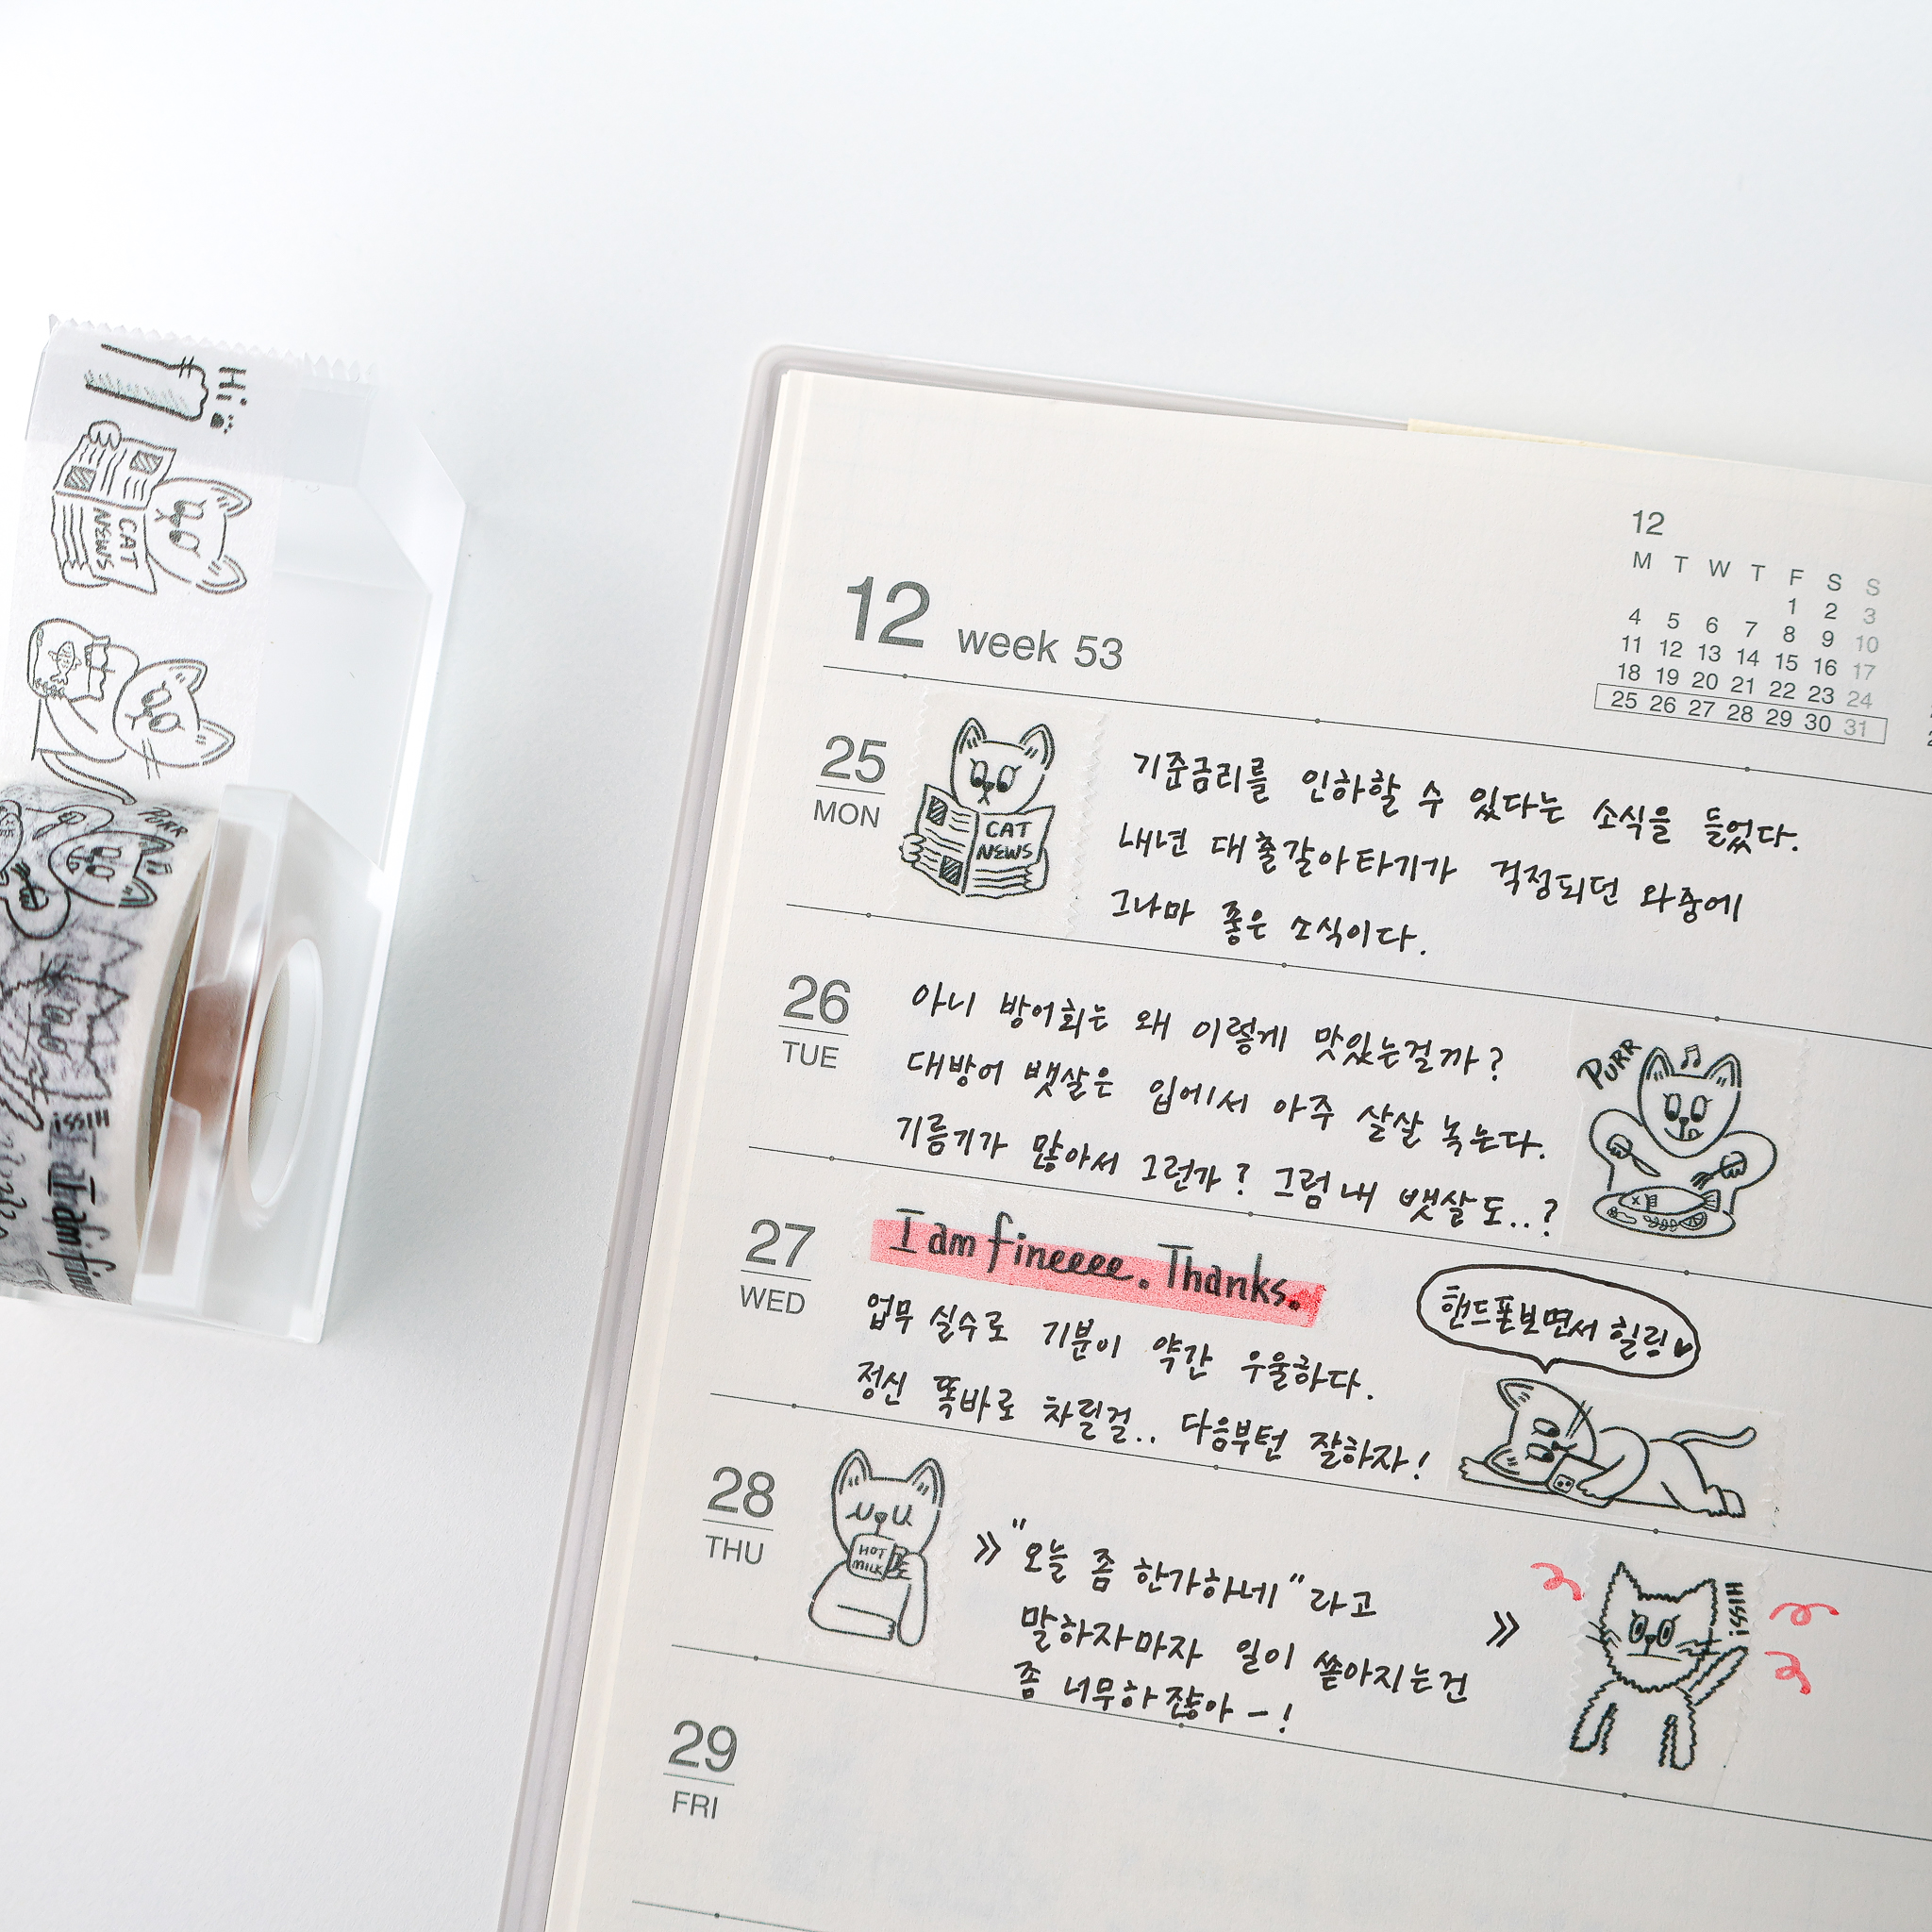 Hi
CAT
NEWS
PURR
HISS!
I am fine
12
M T W T F S S
1 2 3
4 5 6 7 8 9 10
11 12 13 14 15 16 17
18 19 20 21 22 23 24
25 26 27 28 29 30 31
12 week 53
25
MON
CAT
NEWS
기준금리를 인하할 수 있다는 소식을 들었다.
내년 대출갈아타기가 걱정되던 와중에
그나마 좋은 소식이다.
26
TUE
아니 방어회는 왜 이렇게 맛있는걸까?
대방어 뱃살은 입에서 아주 살살 녹는다.
기름기가 많아서 그런가? 그럼 내 뱃살도..?
PURR
27
WED
I am fineeee. Thanks.
업무 실수로 기분이 약간 우울하다.
정신 똑바로 차릴걸.. 다음부턴 잘하자!
핸드폰보면서 힐링♥
28
THU
HOT
MILK
》 "오늘 좀 한가하네"라고
말하자마자 일이 쏟아지는건 》
좀 너무하잖아 ㅡ!
HISS!
29
FRI